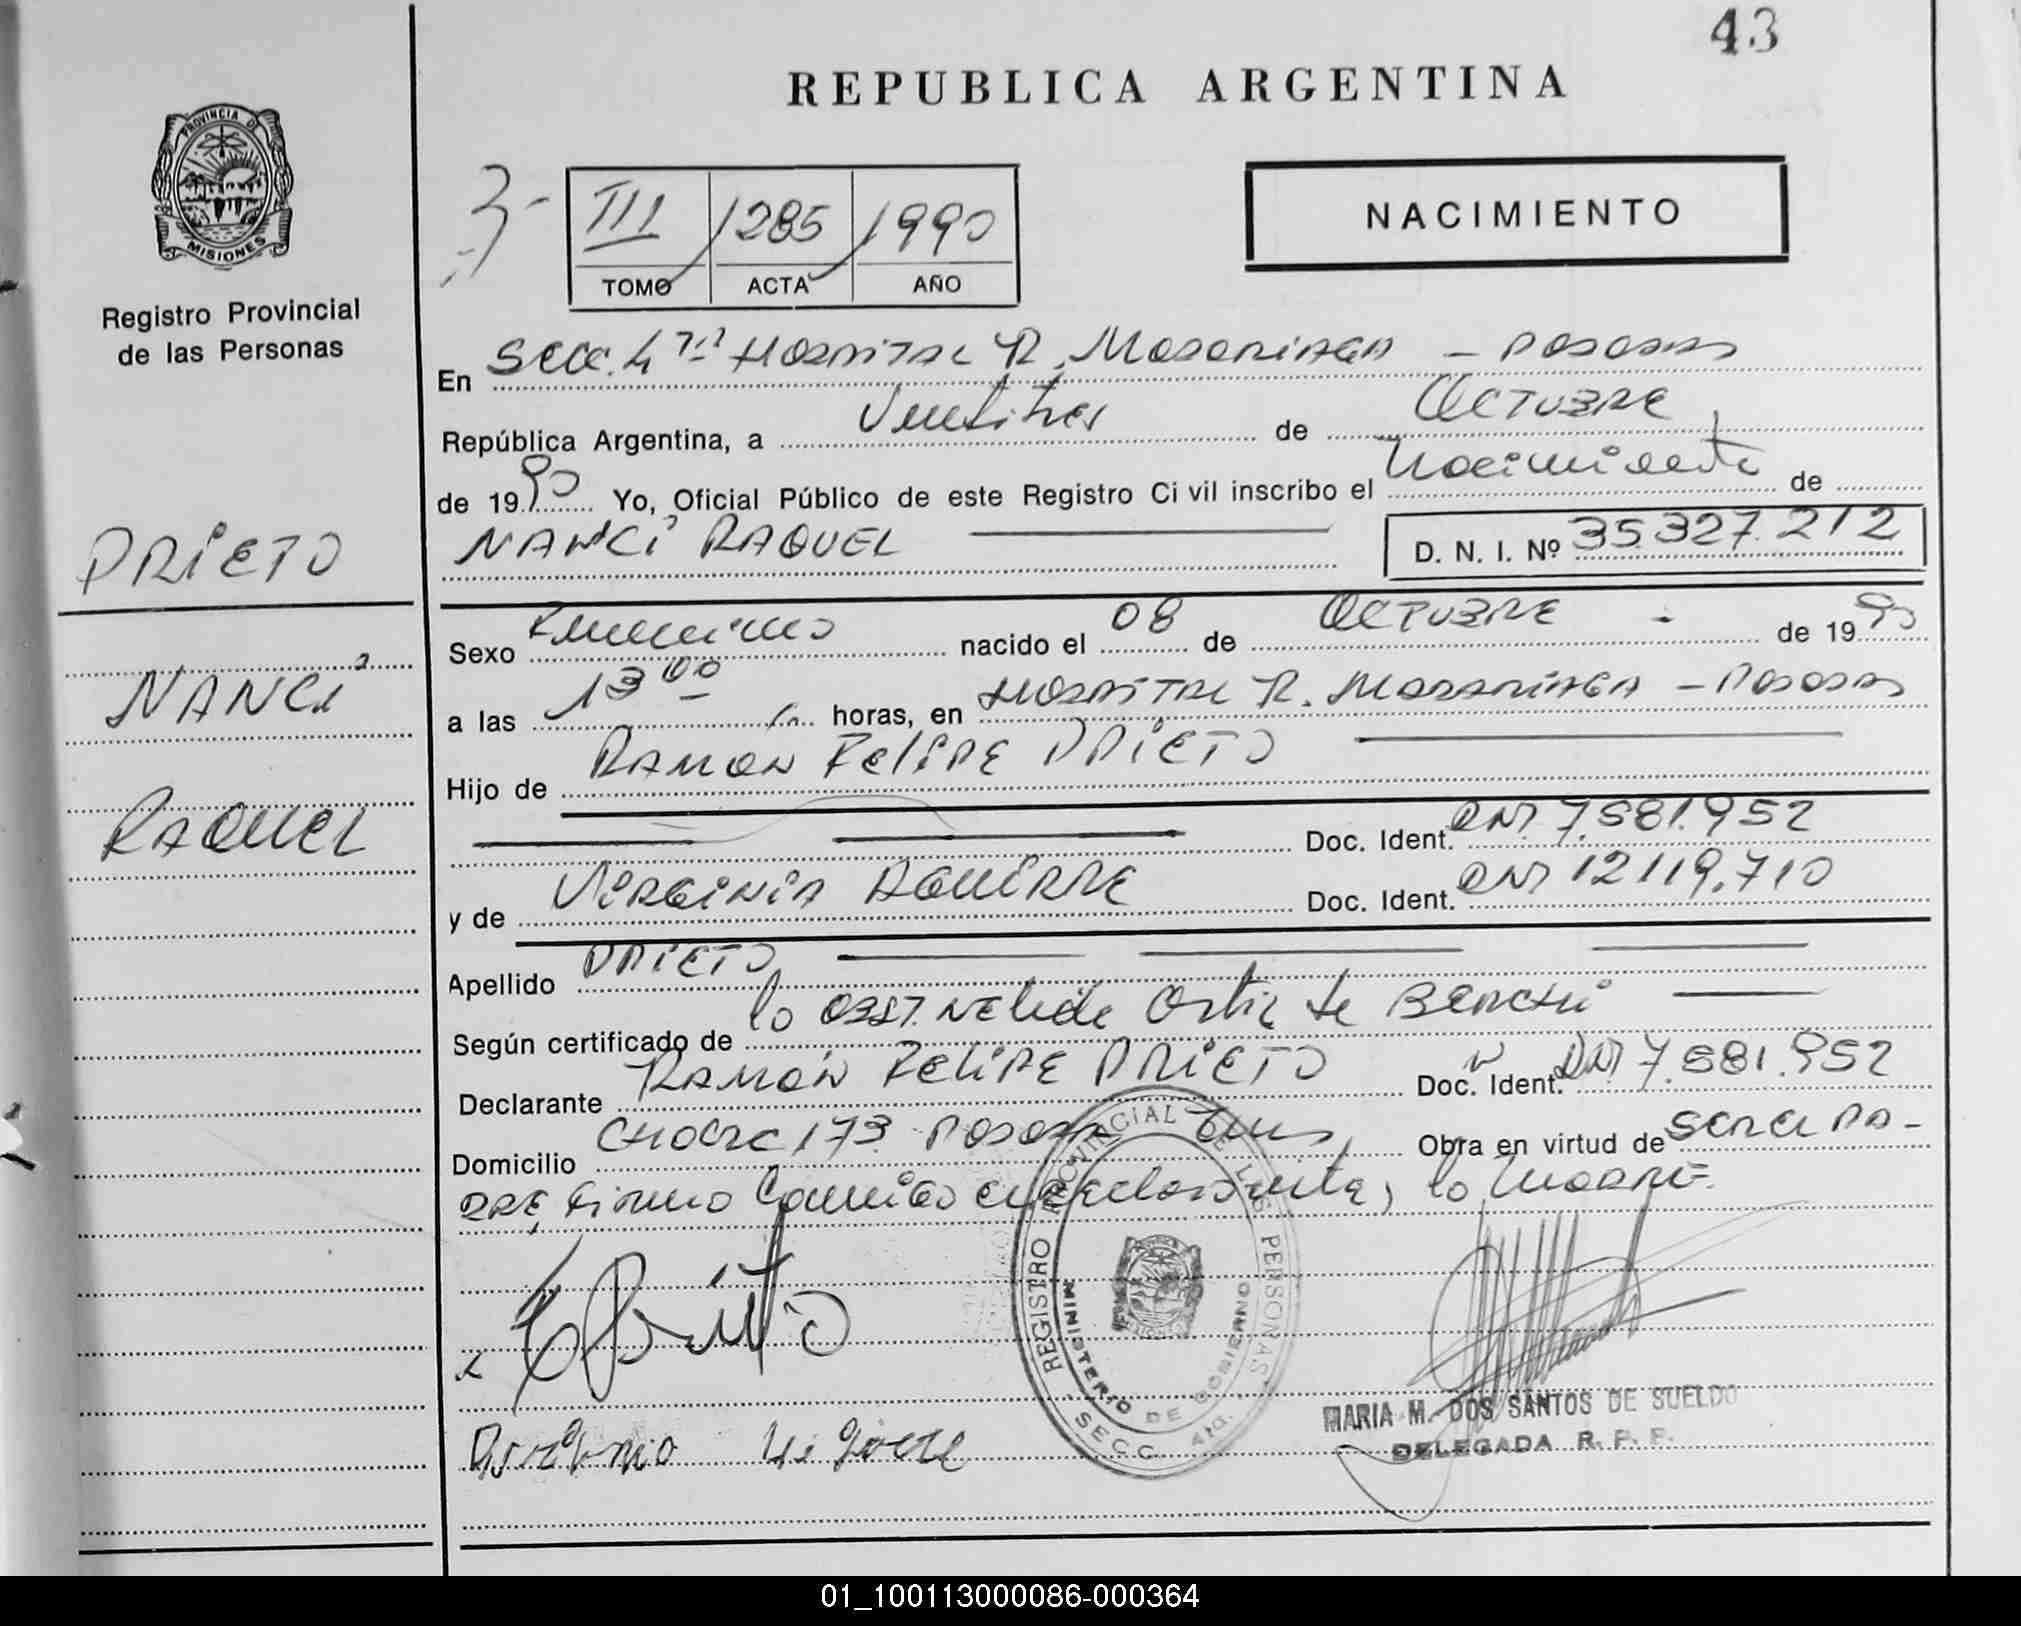 43
REPUBLICA ARGENTINA
PROVINCIA DE
MISIONES
Registro Provincial
de las Personas
3-
III 1285 1990
TOMO ACTA AÑO
NACIMIENTO
En Secc. 4ta Hospital R. Madariaga - Posadas
República Argentina, a Veintitres de Octubre
de 1990 Yo, Oficial Público de este Registro Civil inscribo el Nacimiento de
NANCI RAQUEL D. N. I. Nº 35.327.212
PRIETO
NANCI
RAQUEL
Sexo Femenino nacido el 08 de Octubre de 1990
a las 13 00 horas, en Hospital R. Madariaga - Posadas
Hijo de Ramon Felipe PRIETO
Doc. Ident. DNI 7.581.952
y de Virginia AGUIRRE Doc. Ident. DNI 12119.710
Apellido PRIETO
Según certificado de la Obst. Nelida Ortiz de Bianchi
Declarante Ramón Felipe PRIETO Doc. Ident. DNI 7.581.952
Domicilio 173 Posadas Obra en virtud de Ser el PA-
DRE, Firma Conmigo el declarante, la Madre.
Prieto
REGISTRO PROVINCIAL DE LAS PERSONAS
MINISTERIO DE GOBIERNO
SECC. 4ta.
MARIA M. DOS SANTOS DE SUELDO
DELEGADA R. P. P.
01_100113000086-000364